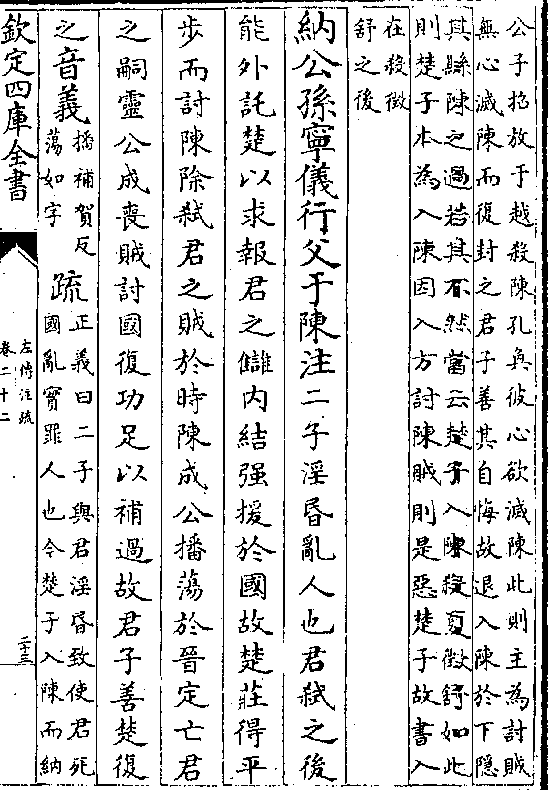 公子招放于越殺陳孔奐彼心欲滅陳此則主為討賊
無心滅陳而復封之君子善其自悔故退入陳於下隠
其縣陳之過若其不然當云楚子入陳殺夏徵舒如此
則楚子本為入陳因入方討陳賊則是惡楚子故書入
在殺徵
舒之後
納公孫寧儀行父于陳注二子淫昏亂人也君弑之後
能外託楚以求報君之讎内結强援於國故楚莊得平
步而討陳除弑君之賊於時陳成公播蕩於晉定亡君
之嗣靈公成喪賊討國復功足以補過故君子善楚復
之音義播補賀反
蕩如字
疏正義曰二子與君淫昏致使君死
國亂實罪人也令楚子入陳而納
欽定四庫全書
左傳注疏
卷二十二
二十三